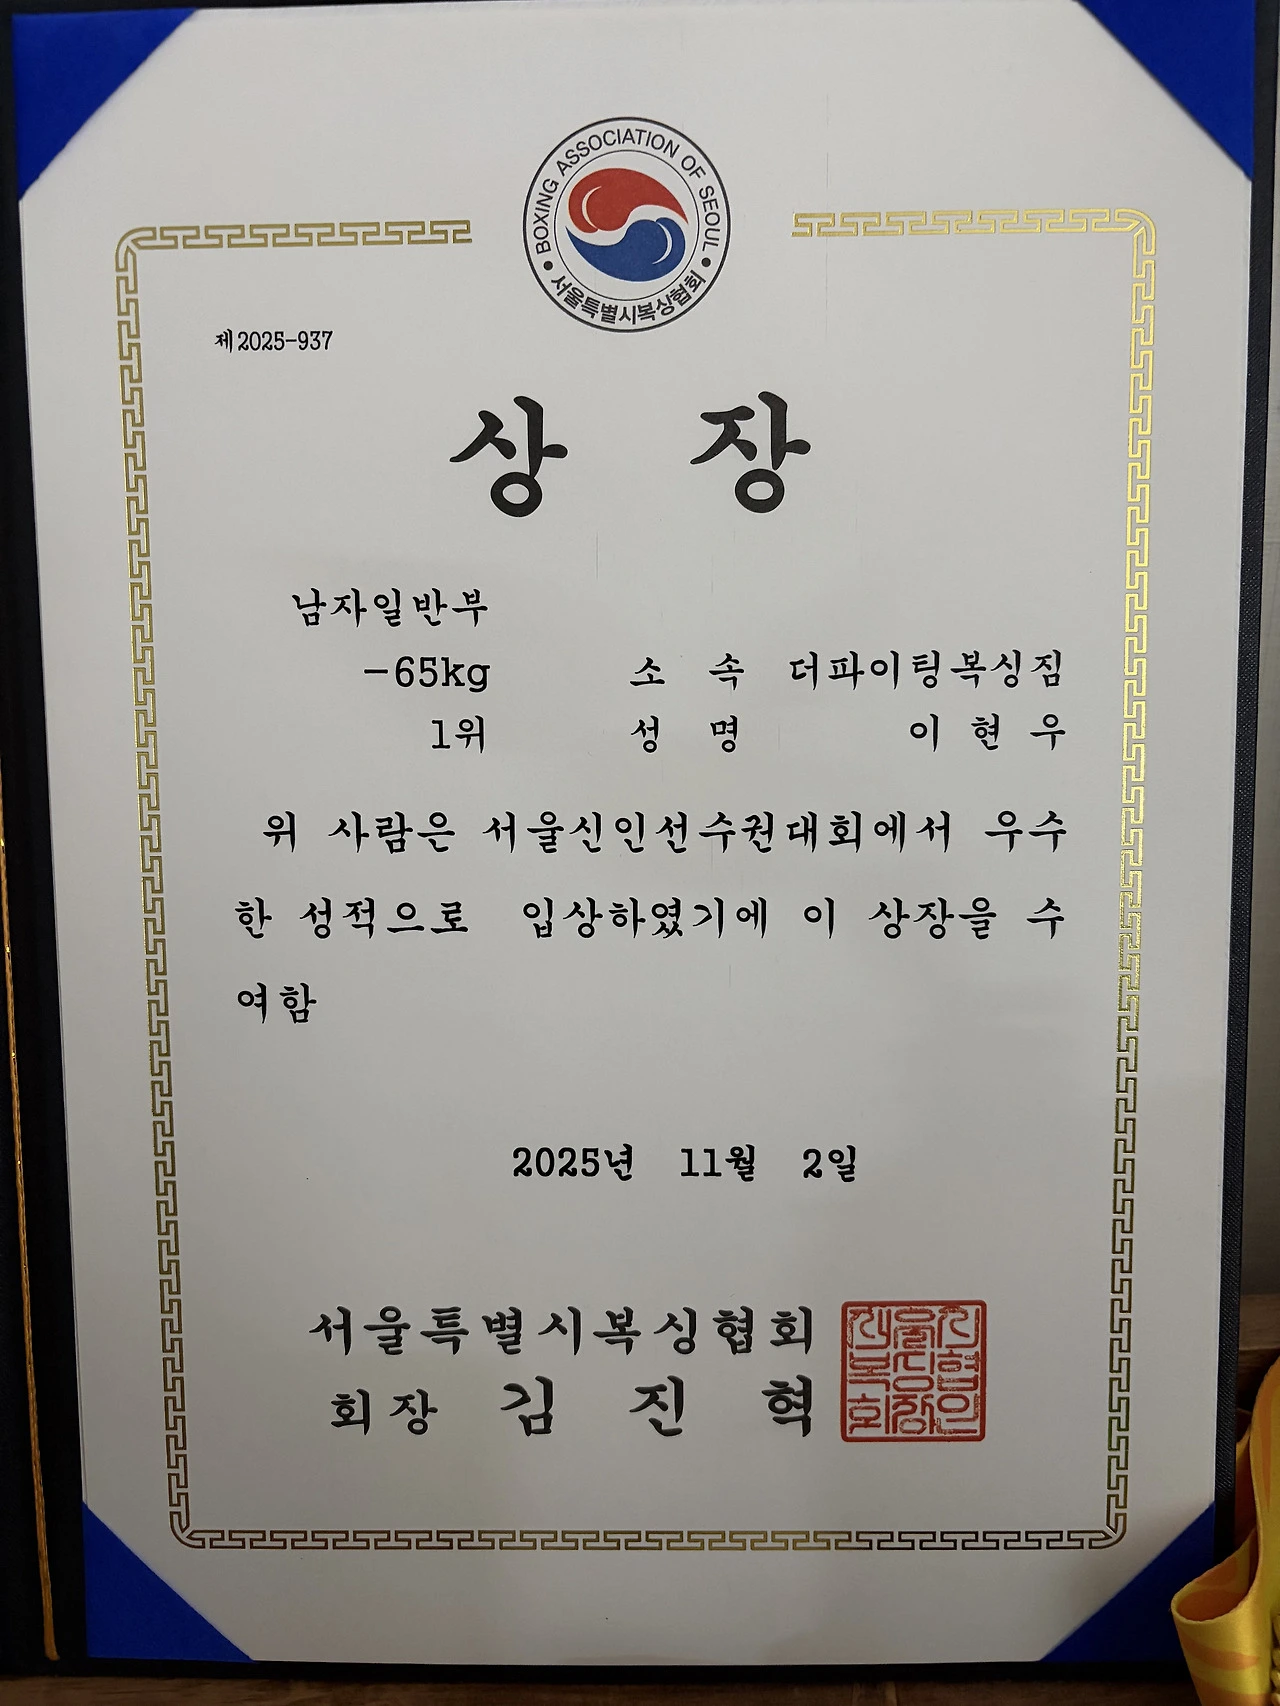 BOXING ASSOCIATION OF SEOUL
서울특별시복싱협회
제2025-937
상 장
남자일반부
-65kg 소 속 더파이팅복싱짐
1위 성 명 이 현 우
위 사람은 서울신인선수권대회에서 우수
한 성적으로 입상하였기에 이 상장을 수
여함
2025년 11월 2일
서울특별시복싱협회
회장 김 진 혁